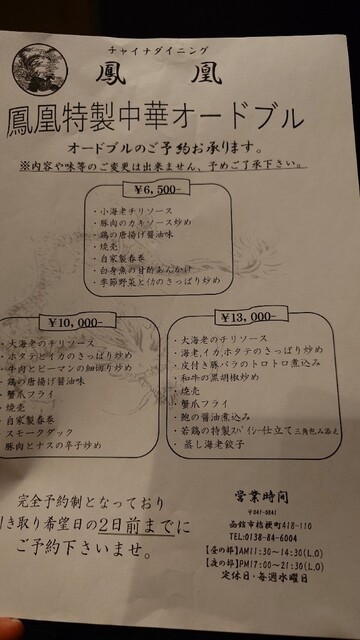 チャイナダイニング
鳳 凰
鳳凰特製中華オードブル
オードブルのご予約お承ります。
※内容や味等のご変更は出来ません、予めご了承下さい。
¥6,500-
・小海老チリソース
・豚肉のカキソース炒め
・鶏の唐揚げ醤油味
・焼売
・自家製春巻
・白身魚の甘酢あんかけ
・季節野菜とイカのさっぱり炒め
¥10,000-
・大海老のチリソース
・ホタテとイカのさっぱり炒め
・牛肉とピーマンの細切り炒め
・鶏の唐揚げ醤油味
・蟹爪フライ
・焼売
・自家製春巻
・スモークダック
・豚肉とナスの辛子炒め
¥13,000-
・大海老のチリソース
・海老,イカ,ホタテのさっぱり炒め
・皮付き豚バラのトロトロ煮込み
・和牛の黒胡椒炒め
・焼売
・蟹爪フライ
・鮑の醤油煮込み
・若鶏の特製スパイシー仕立て三角包み添え
・蒸し海老餃子
完全予約制となっており
引き取り希望日の2日前までに
ご予約下さいませ。
営業時間
〒041-0841
函館市桔梗町418-110
TEL:0138-84-6004
【昼の部】AM11:30~14:30(L.O)
【夜の部】PM17:00~21:30(L.O)
定休日・毎週水曜日